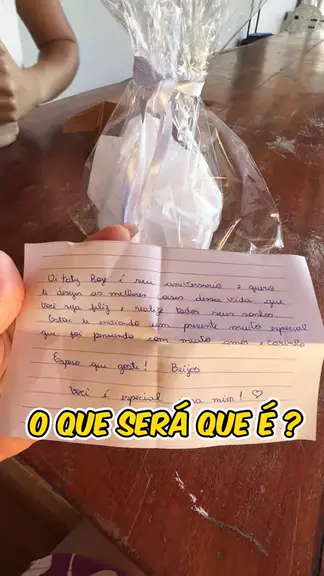 Oi Taty Hoje é seu aniversario e quero
ti desejar as melhores coisas dessa vida que
você seja feliz e realize todos seus sonhos
Estou ti enviando um presente muito especial
que foi pensando com muito amor e carinho
Espero que goste! Beijos
Você é especial pra mim! ♡
O QUE SERÁ QUE É ?